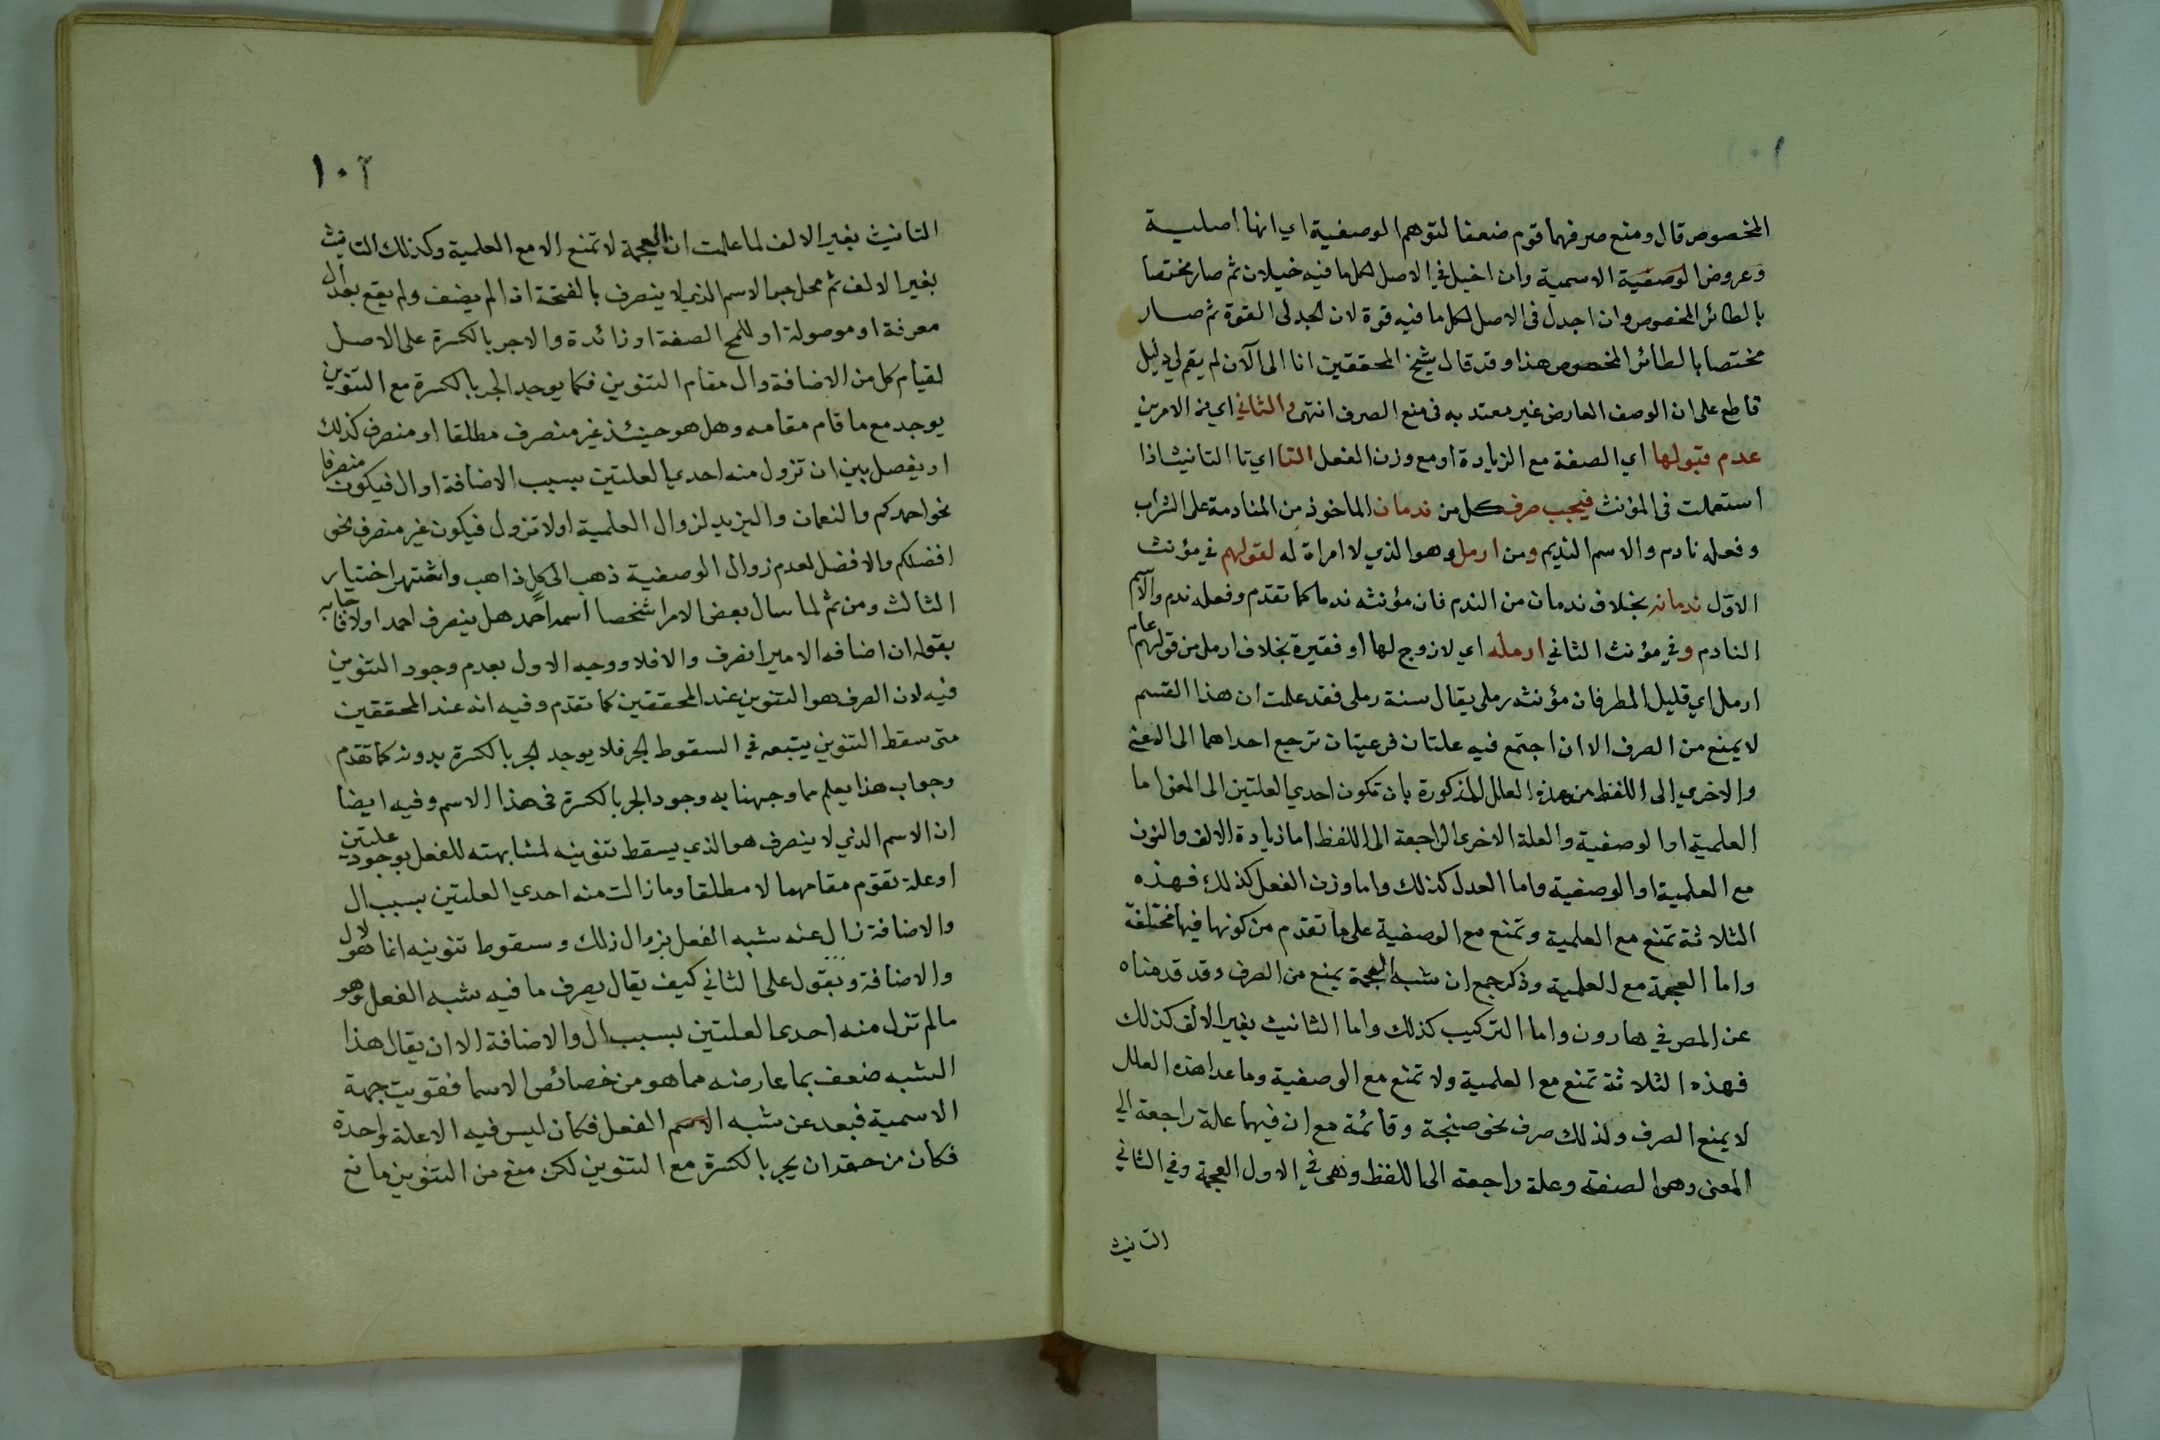 المخصوص قال ومنع صرفهما قوم ضعفا لتوهم الوصفية اي انها اصلية
وعروض الوصفية الاسمية وان اخيل في الاصل لكل ما فيه خيلان ثم صار مختصا
بالطائر المخصوص وان اجدل في الاصل لكل ما فيه قوة لان الجدل القوة ثم صار
مختصا بالطائر المخصوص هذا وقد قال شيخ المحققين انا الى الآن لم يقم لي دليل
قاطع على ان الوصف العارض غير معتد به في منع الصرف انتهى والثاني اي من الامرين
عدم قبولها اي الصفة مع الزيادة او مع وزن الفعل التا اي تا التانيث اذا
استعملت في المؤنث فيجب صرف كل من ندمان الماخوذ من المنادمة على الشراب
وفعله نادم والاسم النديم ومن ارمل وهو الذي لا امراة له لقولهم في مؤنث
الاوّل ندمانه بخلاف ندمان من الندم فان مؤنثه ندما كما تقدم وفعله ندم والاسم
النادم وفي مؤنث الثاني ارمله اي لا زوج لها او فقيرة بخلاف ارمل من قولهم عام
ارمل اي قليل المطر فان مؤنثه رملى يقال سنة رملى فقد علمت ان هذا القسم
لا يمنع من الصرف الا ان اجتمع فيه علتان فرعيتان ترجع احداهما الى المعنى
والاخري الى اللفظ من هذه العلل المذكورة بان تكون احدي العلتين الى المعنى اما
العلمية او الوصفية والعلة الاخرى الراجعة الى اللفظ اما زيادة الالف والنون
مع العلمية او الوصفية واما العدل كذلك واما وزن الفعل كذلك فهذه
الثلاثة تمنع مع العلمية وتمنع مع الوصفية على ما تقدم من كونها فيها مختلفة
واما العجمة مع العلمية وذكر جمع ان شبه العجمة يمنع من الصرف وقد قدمناه
عن المص في هارون واما التركيب كذلك واما التانيث بغير الالف كذلك
فهذه الثلاثة تمنع مع العلمية ولا تمنع مع الوصفية وما عدا هذه العلل
لا يمنع الصرف ولذلك صرف نحو صنجة وقائمة مع ان فيهما علة راجعة الي
المعنى وهي الصفة وعلة راجعة الى اللفظ وهي في الاول العجمة وفي الثاني
التانيث
١٠٢
التانيث بغير الالف لما علمت ان العجمة لا تمنع الا مع العلمية وكذلك التانيث
بغير الالف ثم محل جر الاسم الذي لا ينصرف بالفتحة اذا لم يضف ولم يقع بعد ال
معرفة او موصولة او للمح الصفة او زائدة والا جر بالكسرة على الاصل
لقيام كل من الاضافة وال مقام التنوين فكما يوجد الجر بالكسرة مع التنوين
يوجد مع ما قام مقامه وهل هو حينئذ غير منصرف مطلقا او منصرف كذلك
او يفصل بين ان تزول منه احدي العلتين بسبب الاضافة او ال فيكون منصرفا
نحو احمدكم والنعمان واليزيد لزوال العلمية او لا تزول فيكون غير منصرف نحو
افضلكم والافضل لعدم زوال الوصفية ذهب الى كل ذاهب واشتهر اختيار
الثالث ومن ثم لما سال بعض الامرا شخصا اسمه احمد هل ينصرف احمد او لا فاجابه
بقوله ان اضافه الامير انصرف والا فلا ووجه الاول بعدم وجود التنوين
فيه لان الصرف هو التنوين عند المحققين كما تقدم وفيه انه عند المحققين
متى سقط التنوين يتبعه في السقوط الجر فلا يوجد الجر بالكسرة بدونه كما تقدم
وجواب هذا يعلم مما وجهنا به وجود الجر بالكسرة في هذا الاسم وفيه ايضا
ان الاسم الذي لا ينصرف هو الذي يسقط تنوينه لمشابهته للفعل بوجود علتين
او علة تقوم مقامهما لا مطلقا وما زالت منه احدي العلتين بسبب ال
والاضافة زال عنه شبه الفعل بزوال ذلك وسقوط تنوينه انما هو لال
والاضافة ونقول على الثاني كيف يقال يصرف ما فيه شبه الفعل وهو
ما لم تزل منه احدى العلتين بسبب ال والاضافة الا ان يقال هذا
الشبه ضعف بما عارضه مما هو من خصائص الاسما فقويت جهة
الاسمية فبعد عن شبه الفعل فكان ليس فيه الا علة واحدة
فكان من حقه ان يجر بالكسرة مع التنوين لكن منع من التنوين مانع